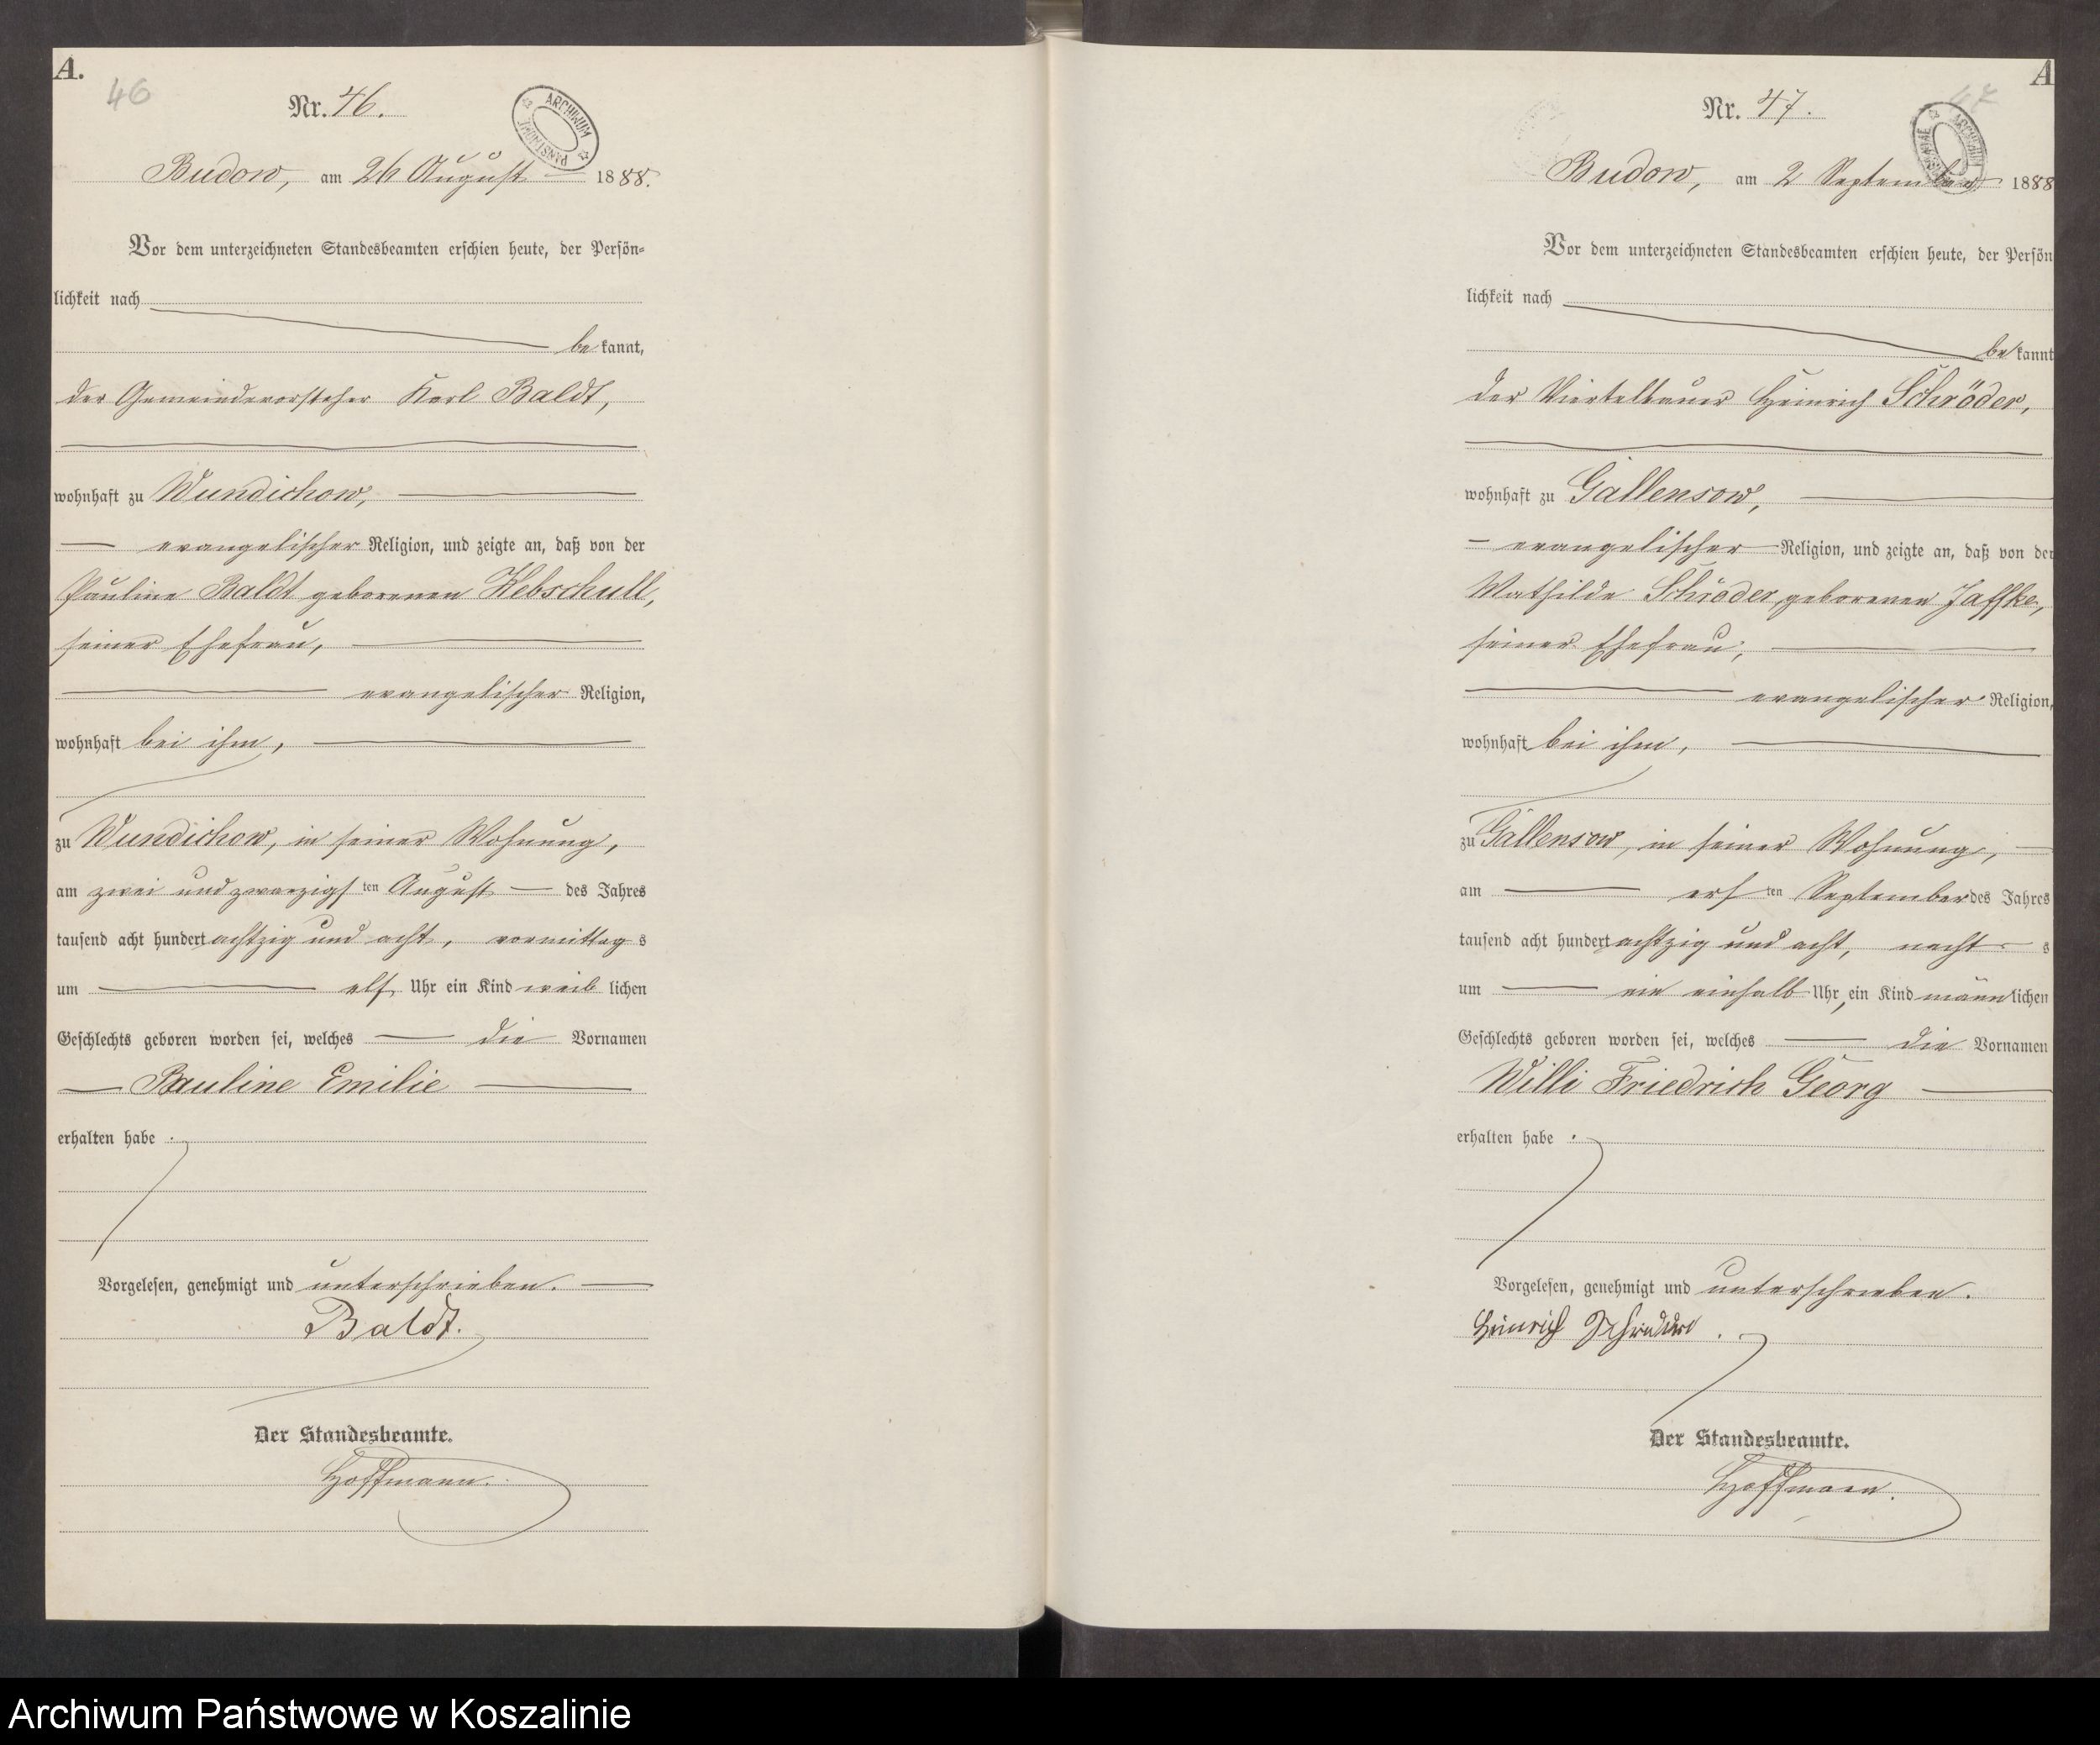 A.
46
Nr. 46.
ARCHIWUM PAŃSTWOWE
Budow, am 26 August 1888.
Vor dem unterzeichneten Standesbeamten erschien heute, der Persön-
lichkeit nach
bekannt,
der Gemeindevorsteher Karl Baldt,
wohnhaft zu Wundichow,
evangelischer Religion, und zeigte an, daß von der
Pauline Baldt geborenen Kebschull,
seiner Ehefrau,
evangelischer Religion,
wohnhaft bei ihm,
zu Wundichow, in seiner Wohnung,
am zwei und zwanzigsten August des Jahres
tausend acht hundert achtzig und acht, vormittags
um elf Uhr ein Kind weiblichen
Geschlechts geboren worden sei, welches die Vornamen
Pauline Emilie
erhalten habe.
Vorgelesen, genehmigt und unterschrieben.
Baldt.
Der Standesbeamte.
Hoffmann.
A
47
Nr. 47.
ARCHIWUM
Budow, am 2 September 1888
Vor dem unterzeichneten Standesbeamten erschien heute, der Persön
lichkeit nach
bekannt
der Viertelbauer Heinrich Schröder,
wohnhaft zu Gallensow,
evangelischer Religion, und zeigte an, daß von der
Mathilde Schröder, geborenen Jaffke,
seiner Ehefrau,
evangelischer Religion,
wohnhaft bei ihm,
zu Gallensow, in seiner Wohnung,
am ersten September des Jahres
tausend acht hundert achtzig und acht, nachts
um ein einhalb Uhr, ein Kind männlichen
Geschlechts geboren worden sei, welches die Vornamen
Willi Friedrich Georg
erhalten habe.
Vorgelesen, genehmigt und unterschrieben.
Heinrich Schröder.
Der Standesbeamte.
Hoffmann.
Archiwum Państwowe w Koszalinie